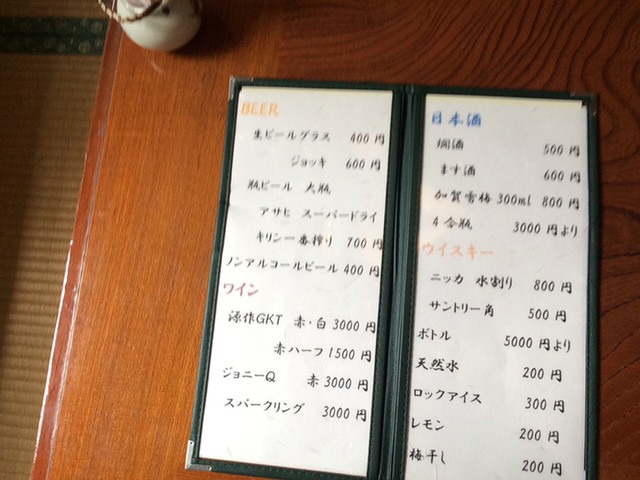 BEER
生ビールグラス 400 円
ジョッキ 600 円
瓶ビール 大瓶
アサヒ スーパードライ
キリン一番搾り 700 円
ノンアルコールビール 400 円
ワイン
源作GKT 赤・白 3000 円
赤ハーフ 1500 円
ジョニーQ 赤 3000 円
スパークリング 3000 円
日本酒
燗酒 500 円
ます酒 600 円
加賀雪梅 300ml 800 円
4合瓶 3000 円より
ウイスキー
ニッカ 水割り 800 円
サントリー角 500 円
ボトル 5000 円より
天然水 200 円
ロックアイス 300 円
レモン 200 円
梅干し 200 円